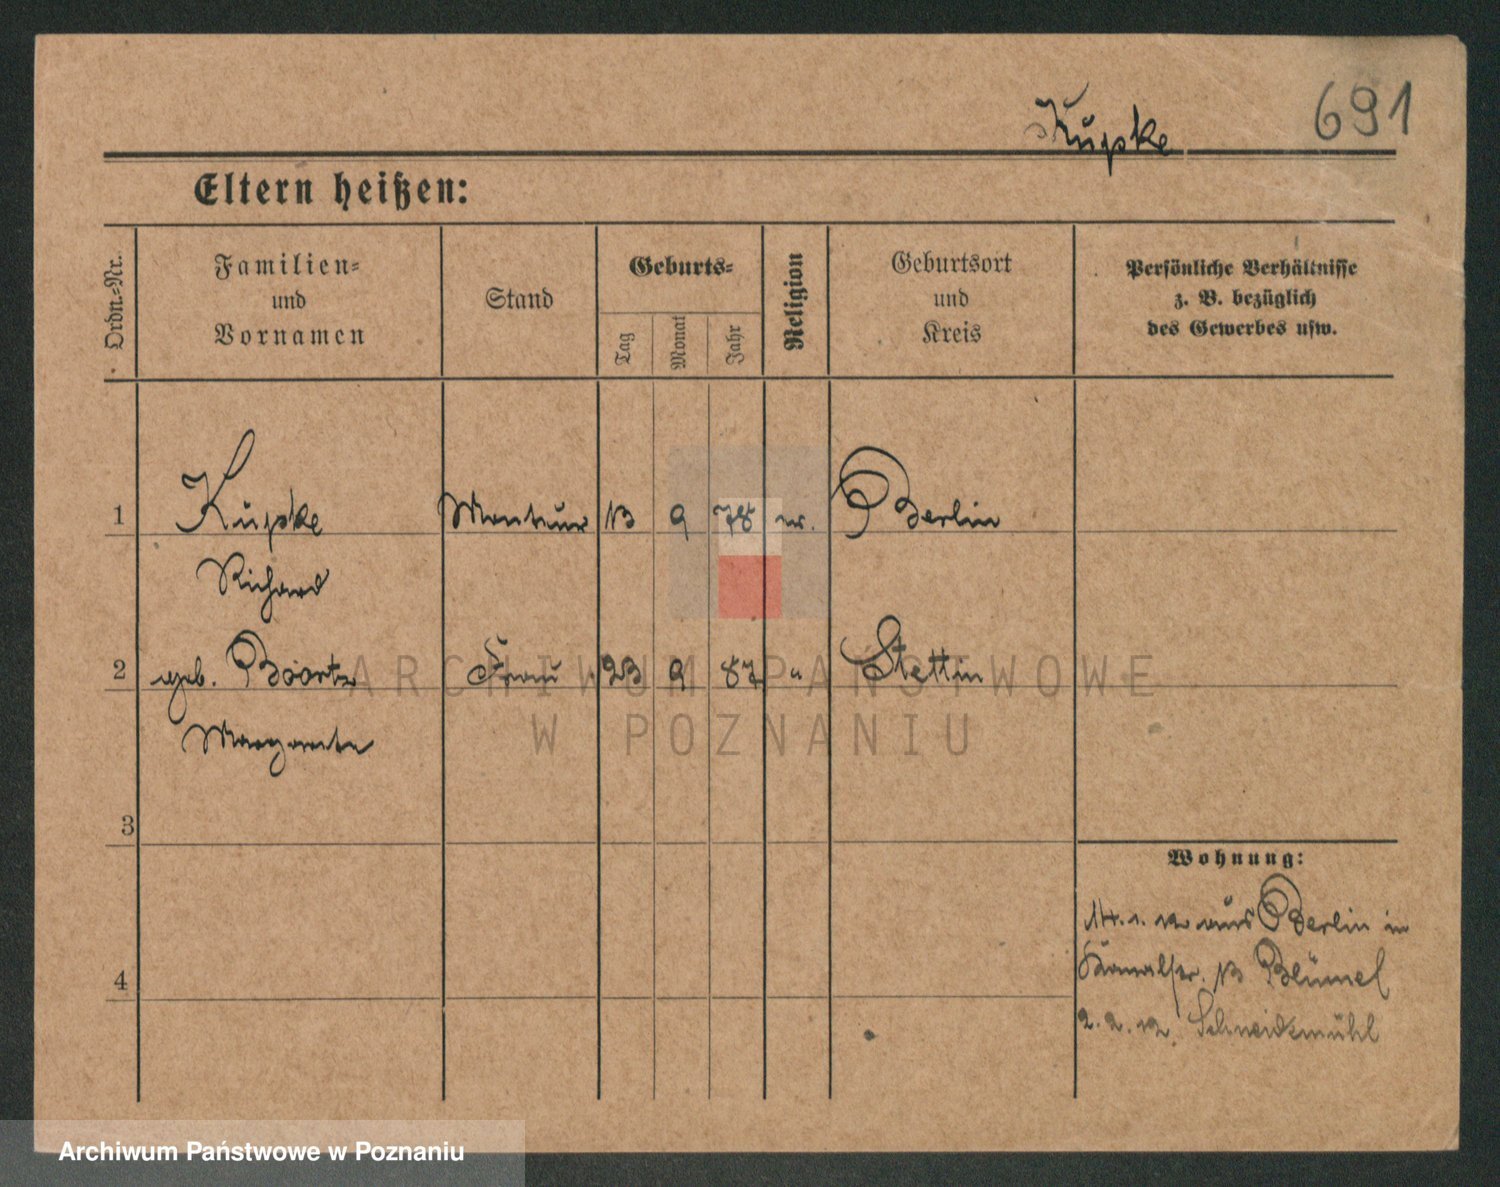 Kupke
691
Eltern heißen:
Ordn.-Nr.
Familien-
und
Vornamen
Stand
Geburts-
Tag
Monat
Jahr
Religion
Geburtsort
und
Kreis
Persönliche Verhältnisse
z. B. bezüglich
des Gewerbes usw.
1 Kupke Monteur 13 9 78 ev. Berlin
Richard
2 geb. Frau 23 9 87 " Stettin
Margarete
3
4
Wohnung:
14.1.12 aus Berlin in
13 Blümel
2.2.12. Schneidemühl
ARCHIWUM PAŃSTWOWE
W POZNANIU
Archiwum Państwowe w Poznaniu